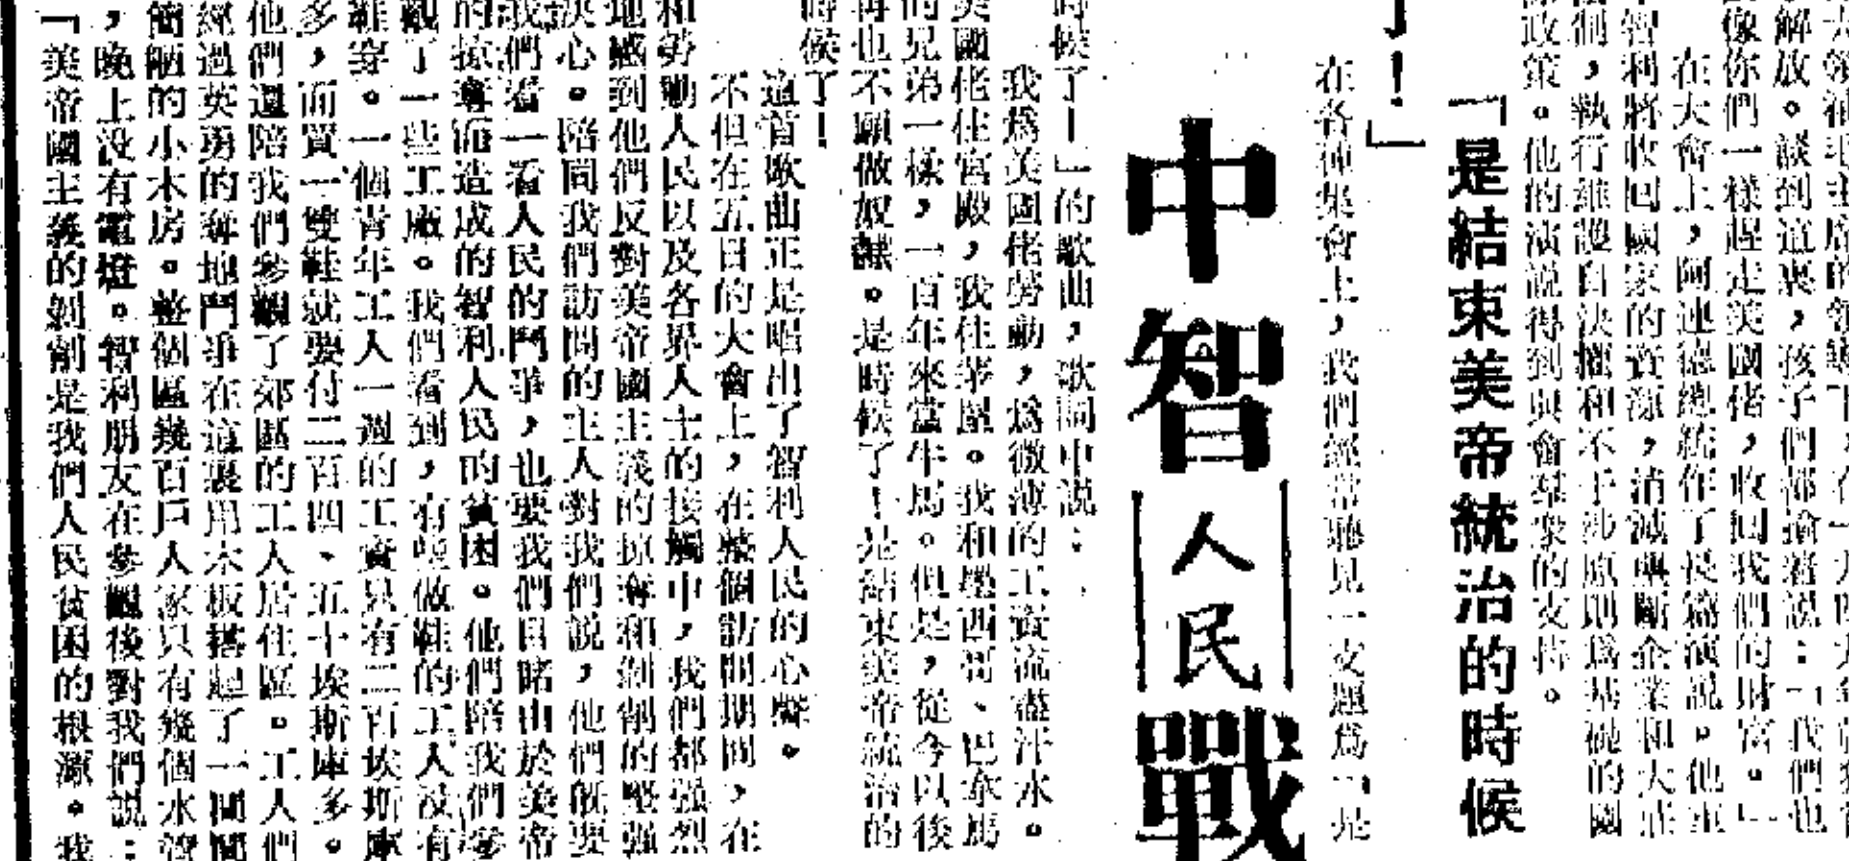 解放。談到這裏，孩子們都搶着說：「我們也
像你們一樣趕走美國佬，收回我們的財富。」
在大會上，阿連德總統作了長篇演說。他重
智利將收回國家的資源，消滅壟斷企業和大莊
制，執行維護自決權和不干涉原則爲基礎的國
政策。他的演說得到與會羣衆的支持。
「是結束美帝統治的時候
了！」
在各種集會上，我們經常聽見一支題爲「是
中智人民戰
時候了！」的歌曲，歌詞中說：
我爲美國佬勞動，爲微薄的工資流盡汗水。
美國佬住宮殿，我住茅屋。我和墨西哥、巴拿馬
的兄弟一樣，一百年來當牛馬。但是，從今以後
再也不願做奴隸。是時候了！是結束美帝統治的
時候了！
這首歌曲正是唱出了智利人民的心聲。
不但在五日的大會上，在整個訪問期間，在
和勞動人民以及各界人士的接觸中，我們都强烈
地感到他們反對美帝國主義的掠奪和剝削的堅强
決心。陪同我們訪問的主人對我們說，他們旣要
我們看一看人民的鬥爭，也要我們目睹由於美帝
的掠奪而造成的智利人民的貧困。他們陪我們參
觀了一些工廠。我們看到，有些做鞋的工人沒有
鞋穿。一個靑年工人一週的工資只有二百埃斯庫
多，而買一雙鞋就要付二百四、五十埃斯庫多。
他們還陪我們參觀了郊區的工人居住區。工人們
經過英勇的奪地鬥爭在這裏用木板搭起了一間間
簡陋的小木房。整個區幾百戶人家只有幾個水管
，晚上沒有電燈。智利朋友在參觀後對我們說：
「美帝國主義的剝削是我們人民貧困的根源。我